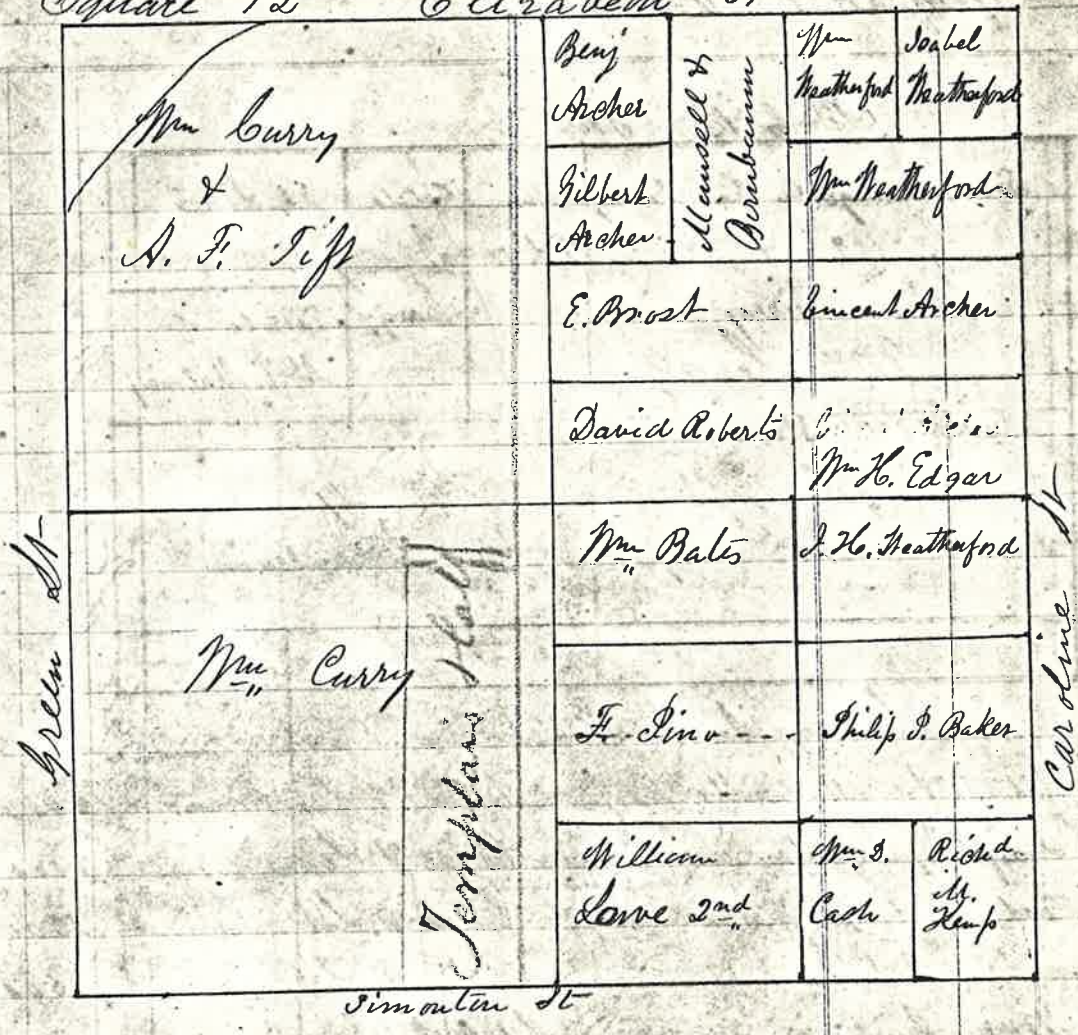 Square 12 Elizabeth St
Wm Curry
&
A. F. Tift
Benj
Archer
Gilbert
Archer
Maunsell &
Wm
Weatherford
Isabel
Weatherford
Wm Weatherford
E. Brost
Vincent Archer
David Roberts
Wm H. Edgar
Green St
Wm Curry
Templar's Hall
Wm Bates
J. H. Weatherford
F. Pino
Philip P. Baker
William
Lowe 2nd
Wm D.
Cash
Richd
M.
Kemp
Caroline St
Simonton St